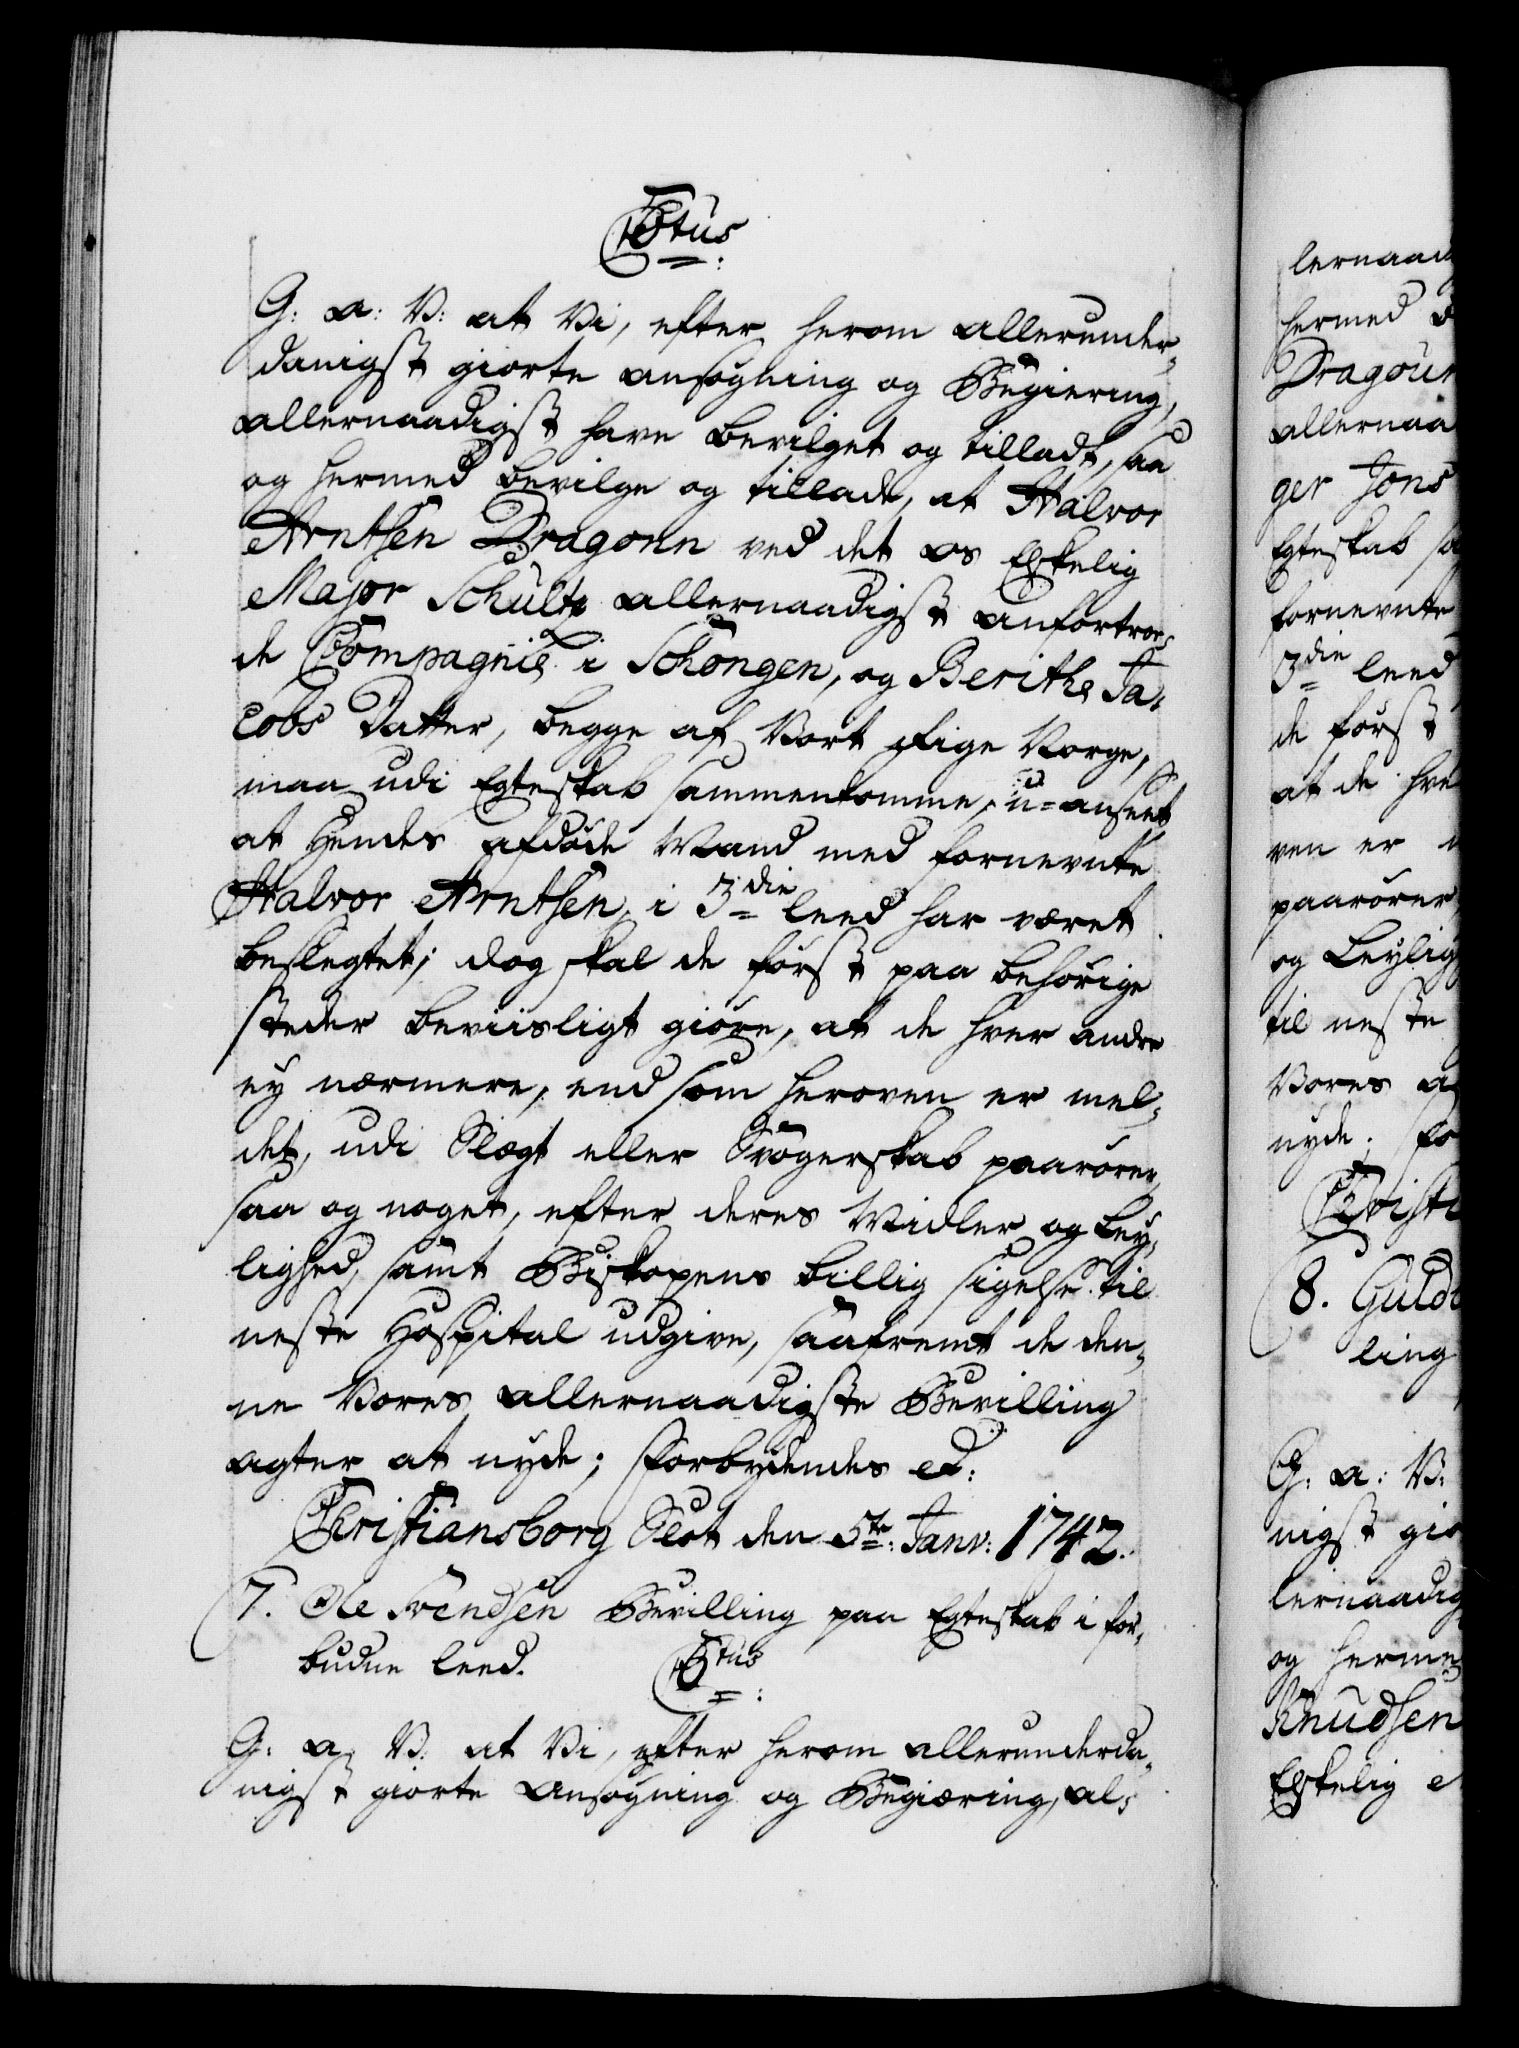 C6tus
G: a: V: at Vi, efter herom allerunder-
danigst giorte ansøgning og Begiering,
allernaadigst have bevilget og tilladt, saa
og hermed bevilge og tillade, at Halvor
Arntsen Dragonn ved det os Elskelig
Major Schultz allernaadigst anfortroe-
de Compagnie i Schongen, og Berithe Ja-
cobs Datter, begge af Vort Rige Norge,
maa udi Egteskab sammenkomme, u-anseet
at Hendes afdøde Mand med fornevnte
Halvor Arntsen i 3die leed har været
beslegtet; dog skal de først paa behørige
steder beviisligt giøre, at de hver andre
ey nærmere, end som heroven er mel-
det, udi Slægt eller Svogerskab paarører,
saa og noget, efter deres Midler og Ley-
lighed, samt Biskopens billig sigelse til
neste Hospital udgive, saafremt de den-
ne Vores allernaadigste Bevilling
agter at nyde; Forbydendes et:
Christiansborg Slot den 5te: Janv: 1742.
7. Ole Svendsen Bevilling paa Egteskab i for-
budne leed.
C6tus
G: a: V: at Vi, efter herom allerunderda-
nigst giorte Ansøgning og Begiæring, al-
lernaad
hermed
Dragoun
allernaa
ger Jons
Egteskab sa
fornevnte
3die leed
de først
at de hve
ven er
paarører
og Leylig
til neste
Vores a
nyde; Fo
Christi
8. Guldb
ling
G: a: V:
nigst gio
lernaadig
og herme
Knudsen
Elskelig